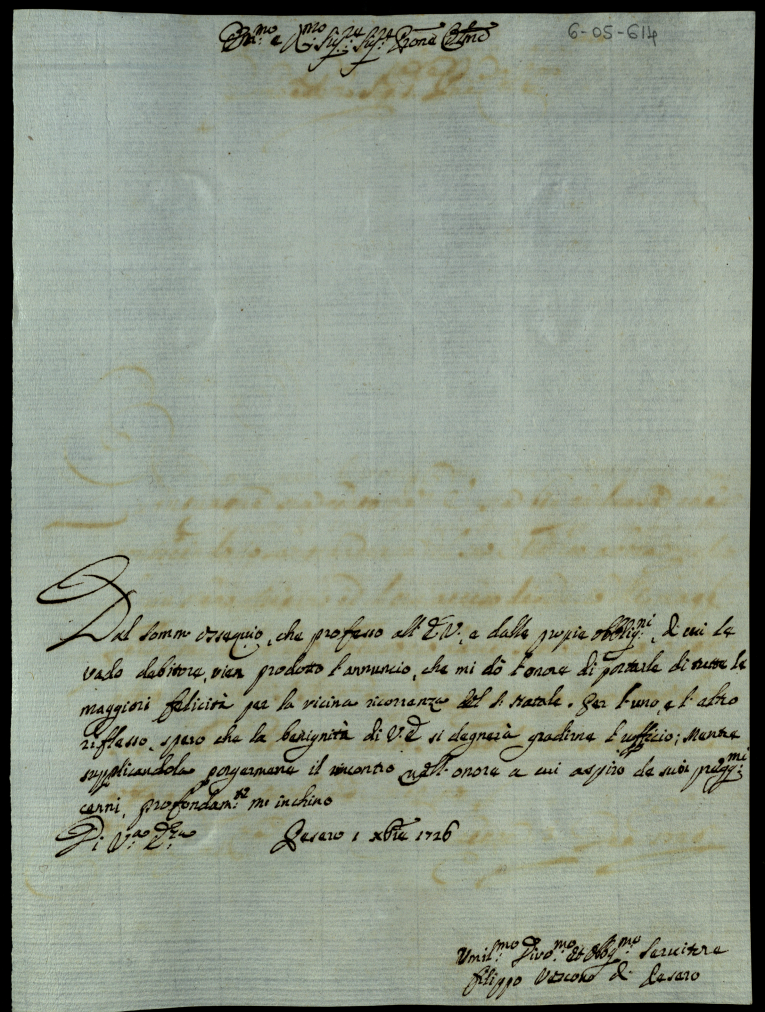 Em.mo e R.mo Sig.re Sig.r Prone Col.mo
6-05-614
Dal sommo ossequio, che professo all'E.V., e dalle proprie obblig.ni, di cui le
vado debitore, vien prodotto l'annuncio, che mi dò l'onore di portarle di tutte le
maggiori felicità per la vicina ricorrenza del S. Natale. Per l'uno, e l'altro
riflesso, spero che la benignità di V.E. si degnerà gradirne l'uffizio; Mentre
supplicandola porgermene il rincontro nell'onore a cui aspiro de suoi preg.mi
cenni, profondam.te m'inchino
Di V.ra E.za Pesaro 1 Xbre 1726
Umil.mo Divo.mo et Obbg.mo Servitore
Filippo Vescovo di Pesaro